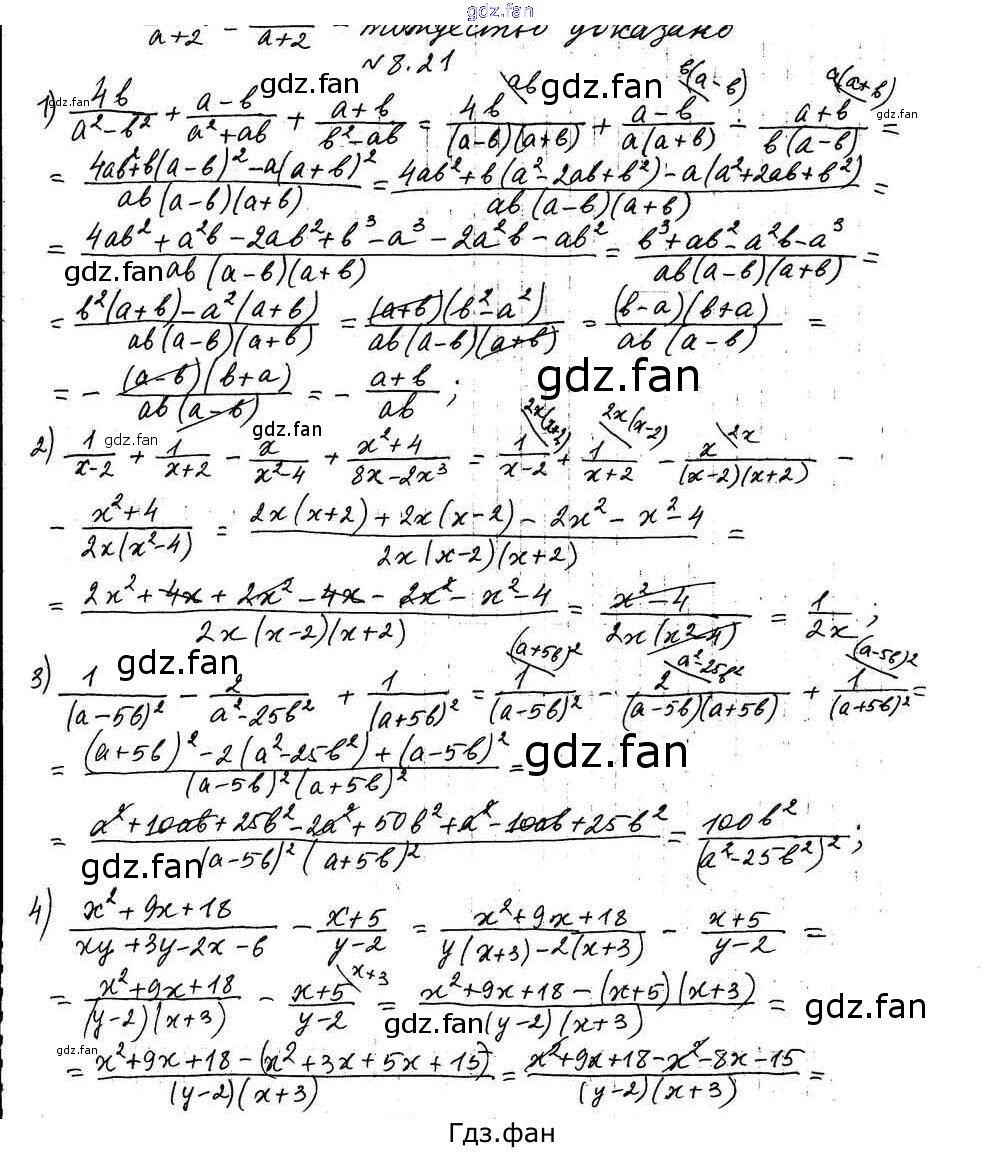 gdz.fan
a+2 - a+2 - тождество доказано
№8.21
1) 4b/(a²-b²) + (a-b)/(a²+ab) + (a+b)/(b²-ab) = 4b/((a-b)(a+b)) \ab + (a-b)/(a(a+b)) \b(a-b) - (a+b)/(b(a-b)) \a(a+b) =
= (4ab²+b(a-b)²-a(a+b)²)/(ab(a-b)(a+b)) = (4ab²+b(a²-2ab+b²)-a(a²+2ab+b²))/(ab(a-b)(a+b)) =
= (4ab²+a²b-2ab²+b³-a³-2a²b-ab²)/(ab(a-b)(a+b)) = (b³+ab²-a²b-a³)/(ab(a-b)(a+b)) =
= (b²(a+b)-a²(a+b))/(ab(a-b)(a+b)) = ((a+b)(b²-a²))/(ab(a-b)(a+b)) = ((b-a)(b+a))/(ab(a-b)) =
= - ((a-b)(b+a))/(ab(a-b)) = - (a+b)/(ab);
2) 1/(x-2) + 1/(x+2) - x/(x²-4) + (x²+4)/(8x-2x³) = 1/(x-2) \2x(x+2) + 1/(x+2) \2x(x-2) - x/((x-2)(x+2)) \2x -
- (x²+4)/(2x(x²-4)) = (2x(x+2)+2x(x-2)-2x²-x²-4)/(2x(x-2)(x+2)) =
= (2x²+4x+2x²-4x-2x²-x²-4)/(2x(x-2)(x+2)) = (x²-4)/(2x(x²-4)) = 1/(2x);
3) 1/((a-5b)²) - 2/(a²-25b²) + 1/((a+5b)²) = 1/((a-5b)²) \(a+5b)² - 2/((a-5b)(a+5b)) \a²-25b² + 1/((a+5b)²) \(a-5b)² =
= ((a+5b)²-2(a²-25b²)+(a-5b)²)/((a-5b)²(a+5b)²) =
= (a²+10ab+25b²-2a²+50b²+a²-10ab+25b²)/((a-5b)²(a+5b)²) = 100b²/((a²-25b²)²);
4) (x²+9x+18)/(xy+3y-2x-6) - (x+5)/(y-2) = (x²+9x+18)/(y(x+3)-2(x+3)) - (x+5)/(y-2) =
= (x²+9x+18)/((y-2)(x+3)) - (x+5)/(y-2) \x+3 = (x²+9x+18-(x+5)(x+3))/((y-2)(x+3)) =
= (x²+9x+18-(x²+3x+5x+15))/((y-2)(x+3)) = (x²+9x+18-x²-8x-15)/((y-2)(x+3)) =
Гдз.фан